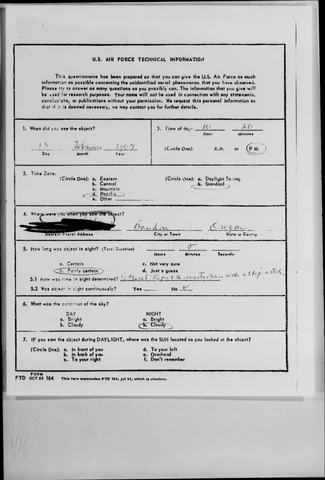 U.S. AIR FORCE TECHNICAL INFORMATION
This questionnaire has been prepared so that you can give the U.S. Air Force as much
information as possible concerning the unidentified aerial phenomenon that you have observed.
Please try to answer as many questions as you possibly can. The information that you give will
be used for research purposes. Your name will not be used in connection with any statements,
conclusions, or publications without your permission. We request this personal information so
that if it is deemed necessary, we may contact you for further details.
1. When did you see the object?
13 February 1967
Day Month Year
2. Time of day: 10 20
Hour Minutes
(Circle One): A.M. or P.M.
3. Time Zone:
(Circle One): a. Eastern
b. Central
c. Mountain
d. Pacific
e. Other
(Circle One): a. Daylight Saving
b. Standard
4. Where were you when you saw the object?
Bandon Oregon
Nearest Postal Address City or Town State or County
5. How long was object in sight? (Total Duration) 5
Hours Minutes Seconds
a. Certain
b. Fairly certain
c. Not very sure
d. Just a guess
5.1 How was time in sight determined? with a stop watch
5.2 Was object in sight continuously? Yes No ✓
6. What was the condition of the sky?
DAY
a. Bright
b. Cloudy
NIGHT
a. Bright
b. Cloudy
7. IF you saw the object during DAYLIGHT, where was the SUN located as you looked at the object?
(Circle One): a. In front of you
b. In back of you
c. To your right
d. To your left
e. Overhead
f. Don't remember
FORM
FTD OCT 62 164 This form supersedes FTD 164, Jul 61, which is obsolete.